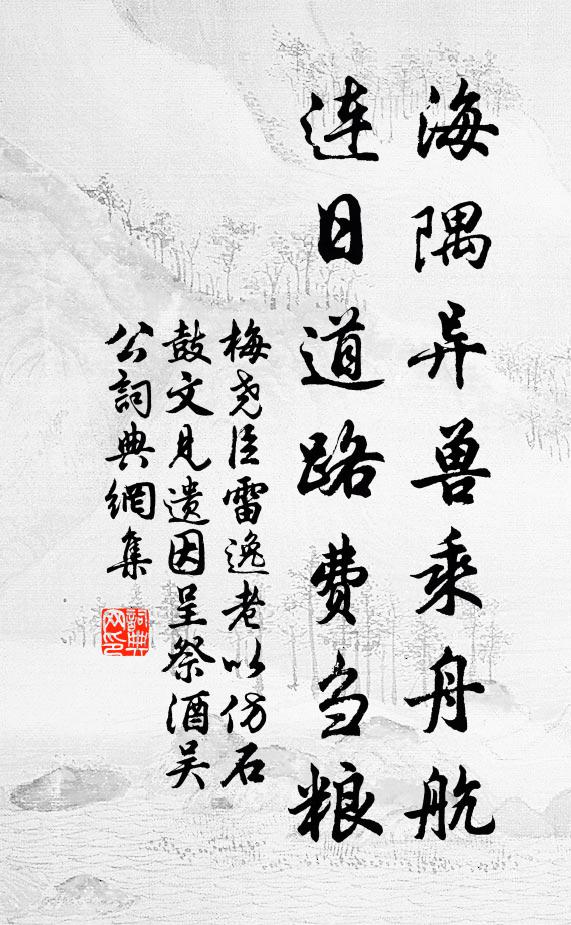 海隅异兽乘舟航
连日道路费刍粮
梅尧臣雷逸老以仿石
鼓文见遗因呈祭酒吴
公詞典網集
詞典
网印